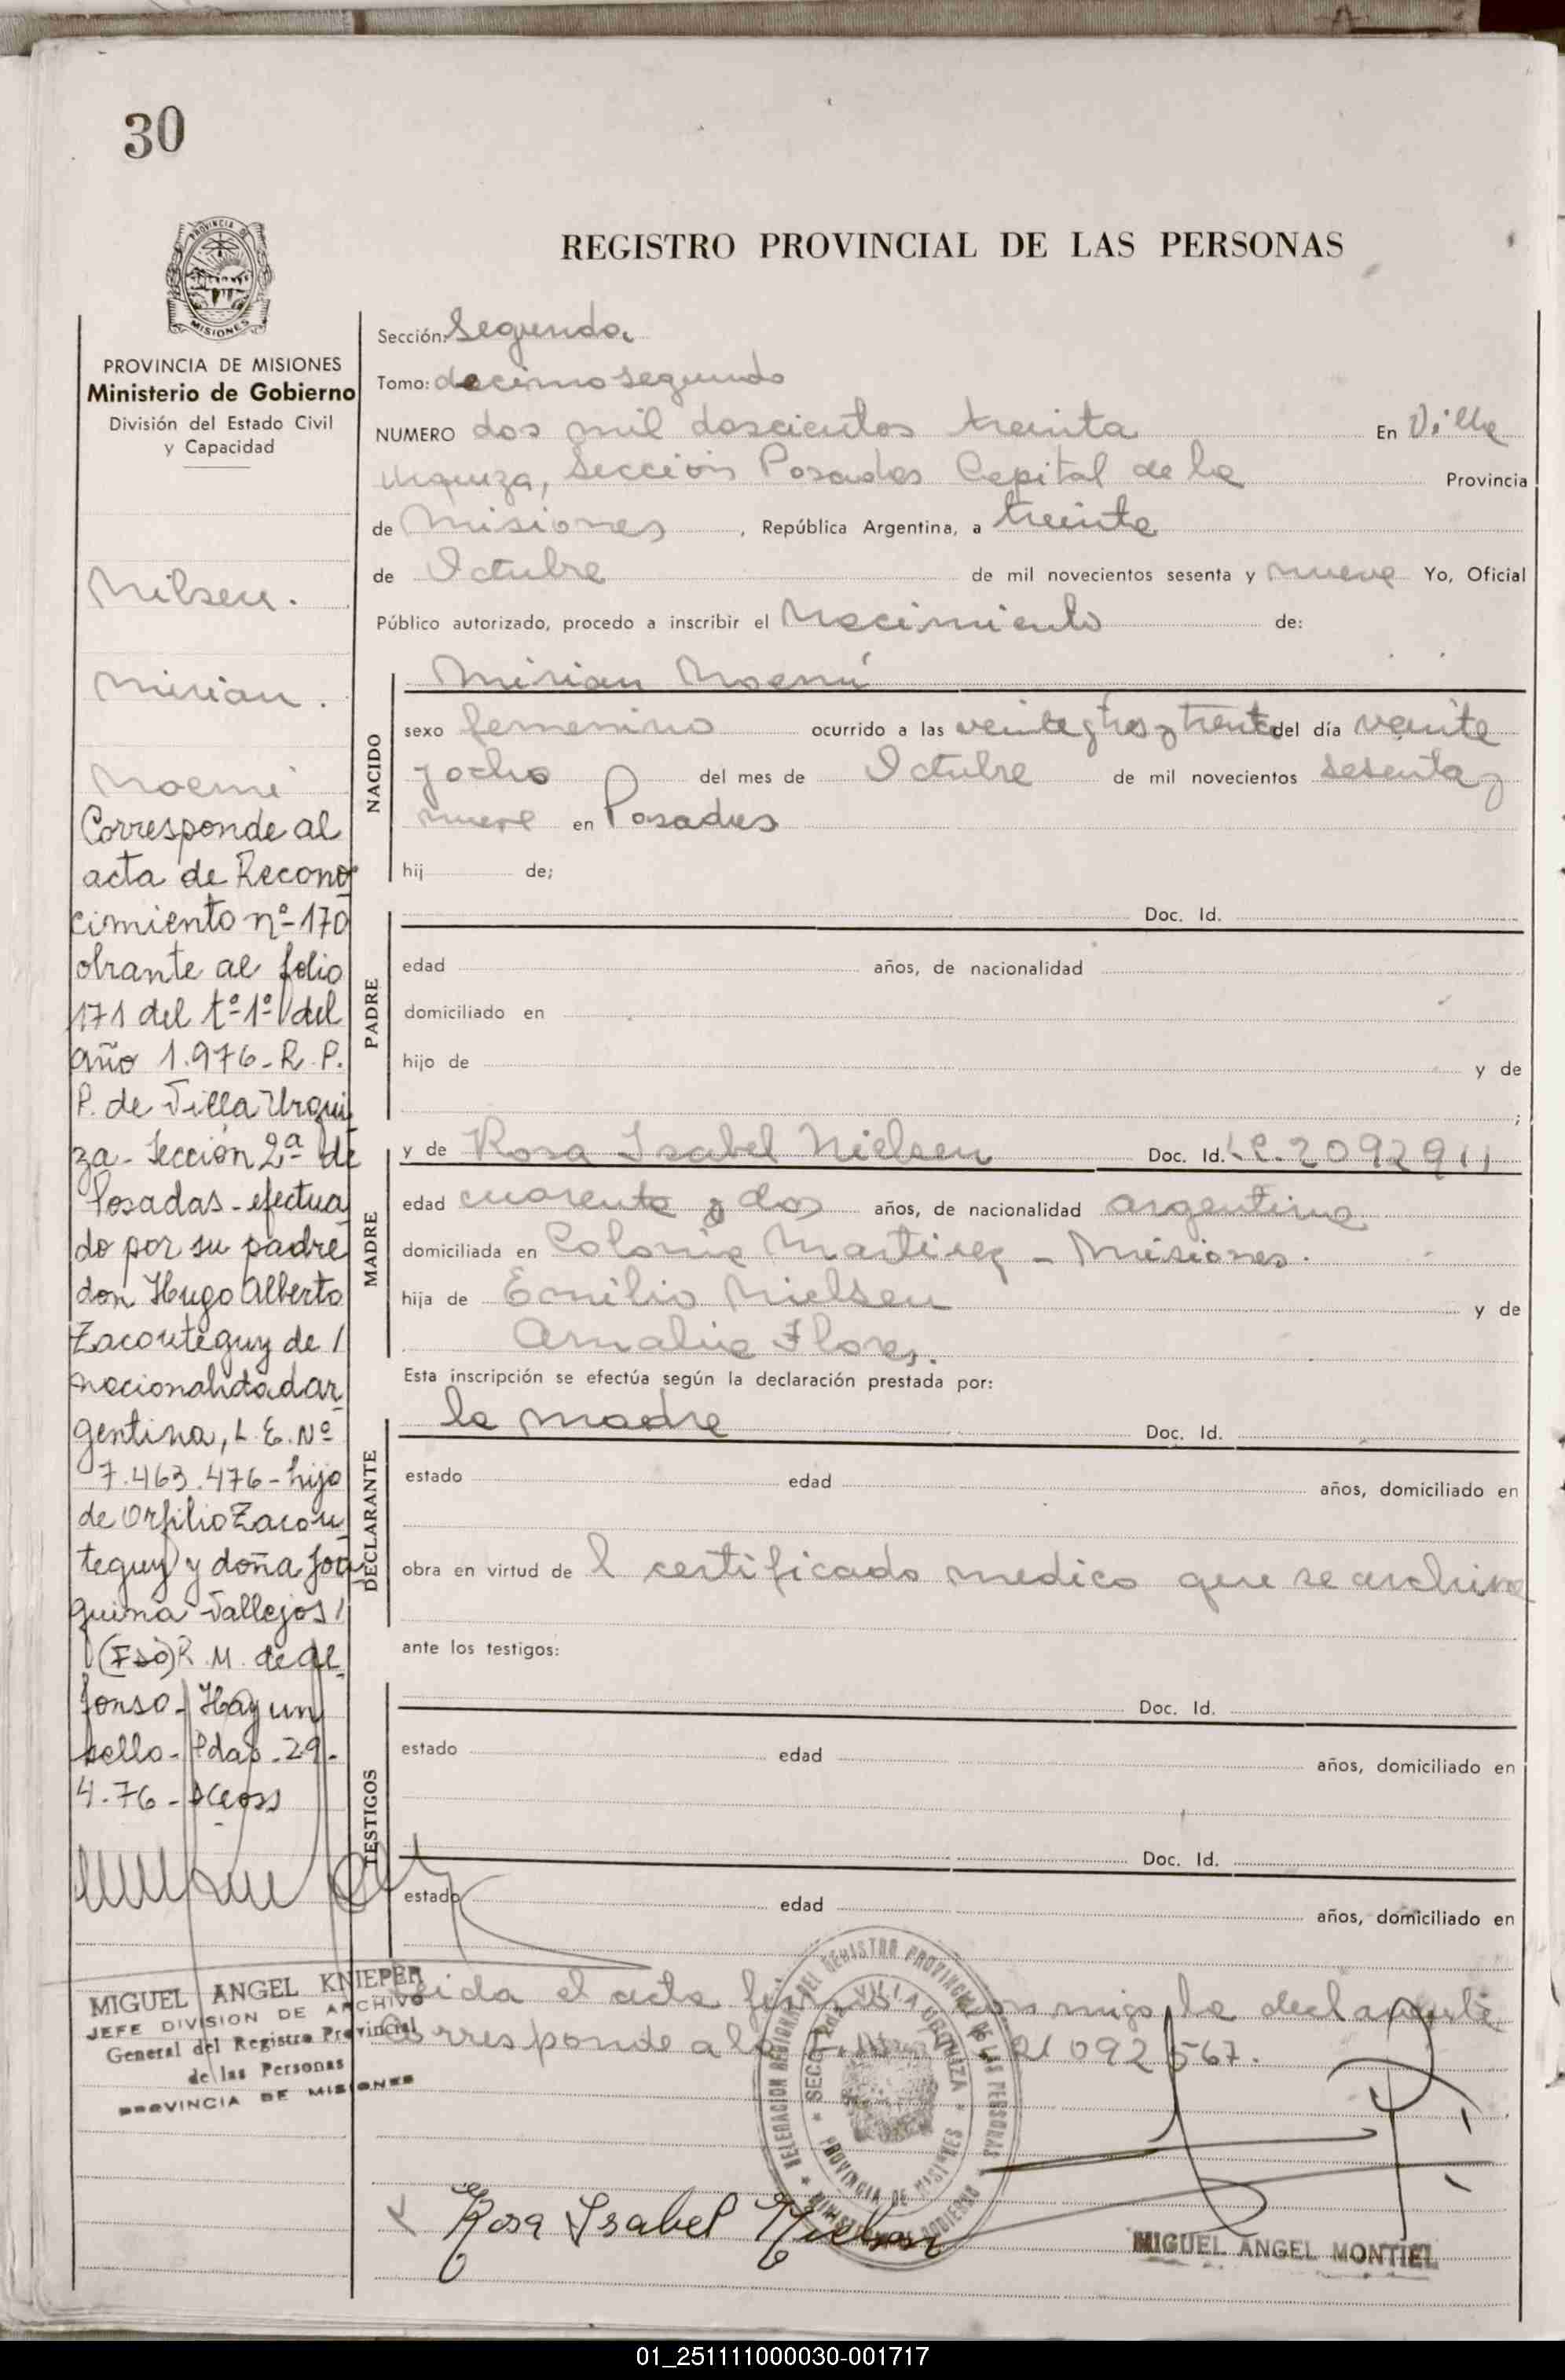 30
PROVINCIA DE MISIONES
REGISTRO PROVINCIAL DE LAS PERSONAS
PROVINCIA DE MISIONES
Ministerio de Gobierno
División del Estado Civil
y Capacidad
Nilsen.
Mirian.
Noemi
Corresponde al
acta de Recono
cimiento nº 170
obrante al folio
171 del tº 1º del
año 1.976 - R. P.
P. de Villa Urqui
za - Sección 2ª de
Posadas - efectua
do por su padre
don Hugo Alberto
Zacouteguy de /
nacionalidad ar
gentina, L. E. Nº
7.463.476 - hijo
de Orfilio Zacou
teguy y doña Joa
quina Vallejos /
(Fdo) R. M. de Al
fonso - Hay un
sello - Pdas. 29.
4.76 -
MIGUEL ANGEL KNIEPER
JEFE DIVISION DE ARCHIVO
General del Registro Provincial
de las Personas
PROVINCIA DE MISIONES
Sección: Segunda.
Tomo: decimo segundo
NUMERO dos mil doscientos treinta En Villa
Urquiza, Sección Posadas Capital de la Provincia
de Misiones, República Argentina, a treinta
de Octubre de mil novecientos sesenta y nueve Yo, Oficial
Público autorizado, procedo a inscribir el Nacimiento de:
NACIDO
Mirian Noemí
sexo femenino ocurrido a las veinte y tres y treinta del día veinte
y ocho del mes de Octubre de mil novecientos sesenta y
nueve en Posadas
hij de;
PADRE
Doc. Id.
edad años, de nacionalidad
domiciliado en
hijo de y de
;
MADRE
y de Rosa Isabel Nielsen Doc. Id. L.C. 2092911
edad cuarenta y dos años, de nacionalidad argentina
domiciliada en Colonia Martirez - Misiones.
hija de Emilio Nielsen y de
Amalia Flores.
Esta inscripción se efectúa según la declaración prestada por:
DECLARANTE
la madre Doc. Id.
estado edad años, domiciliado en
obra en virtud de l certificado medico que se archiva
ante los testigos:
TESTIGOS
Doc. Id.
estado edad años, domiciliado en
Doc. Id.
estado edad años, domiciliado en
Leida el acta firma conmigo la declarante
Corresponde a la 21 092 567.
DELEGACION REGIONAL DEL REGISTRO PROVINCIAL DE LAS PERSONAS
MINISTERIO DE GOBIERNO
SECC. 2da. VILLA URQUIZA
PROVINCIA DE MISIONES
Rosa Isabel Nielsen
MIGUEL ANGEL MONTIEL
01_251111000030-001717